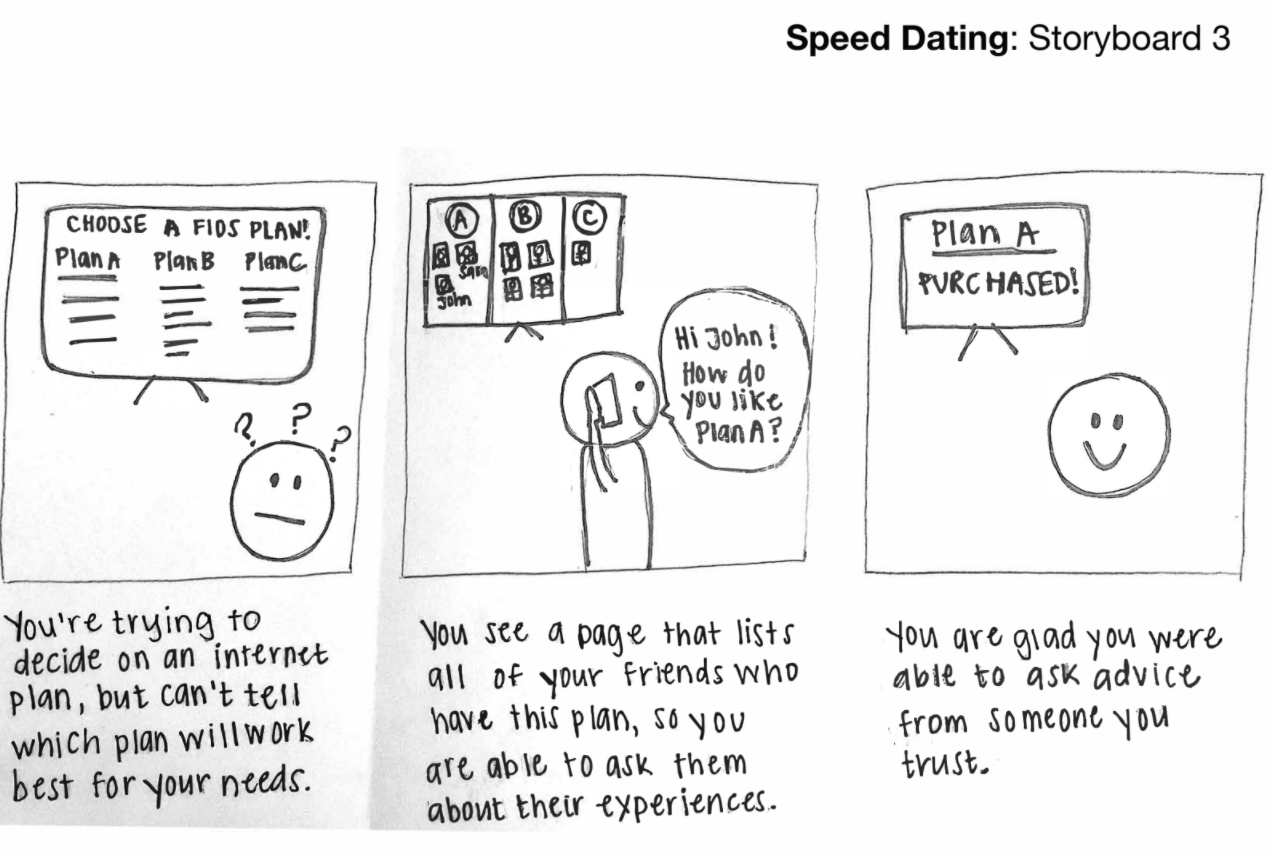 Speed Dating: Storyboard 3
CHOOSE A FIOS PLAN!
Plan A Plan B Plan C
? ? ?
You're trying to
decide on an internet
plan, but can't tell
which plan will work
best for your needs.
A B C
Sara
John
Hi John!
How do
you like
Plan A?
You see a page that lists
all of your friends who
have this plan, so you
are able to ask them
about their experiences.
Plan A
PURCHASED!
You are glad you were
able to ask advice
from someone you
trust.